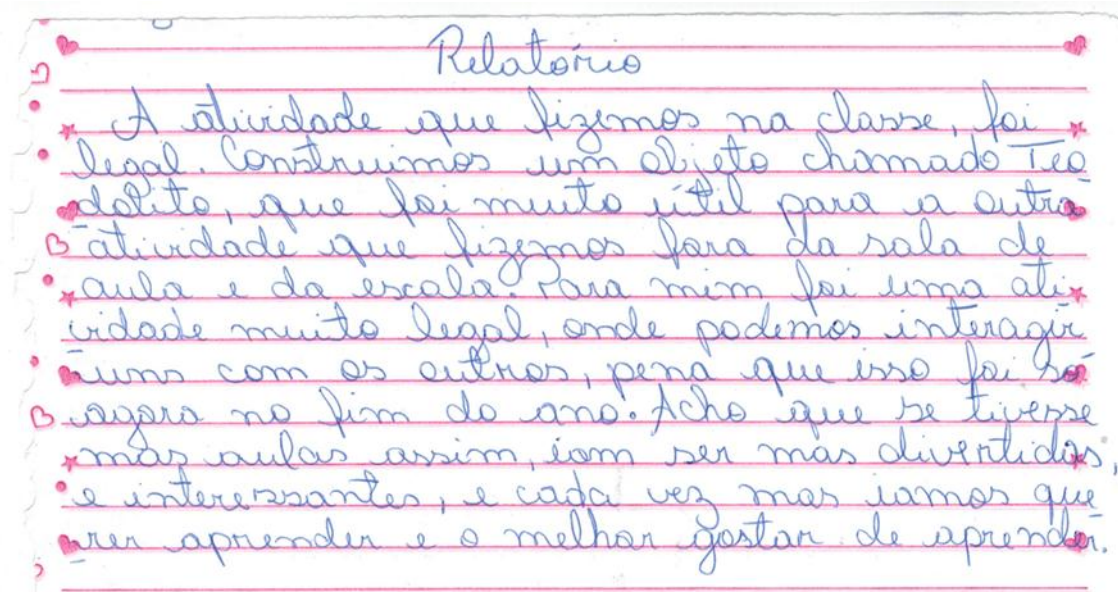 Relatório
A atividade que fizemos na classe, foi
legal. Construimos um objeto chamado Teo
dolito, que foi muito útil para a outra
atividade que fizemos fora da sala de
aula e da escola. Para mim foi uma ati
vidade muito legal, onde podemos interagir
uns com os outros, pena que isso foi só
agora no fim do ano. Acho que se tivesse
mas aulas assim, iam ser mas divertidas,
e interessantes, e cada vez mas iamos que
rer aprender e o melhor gostar de aprender.